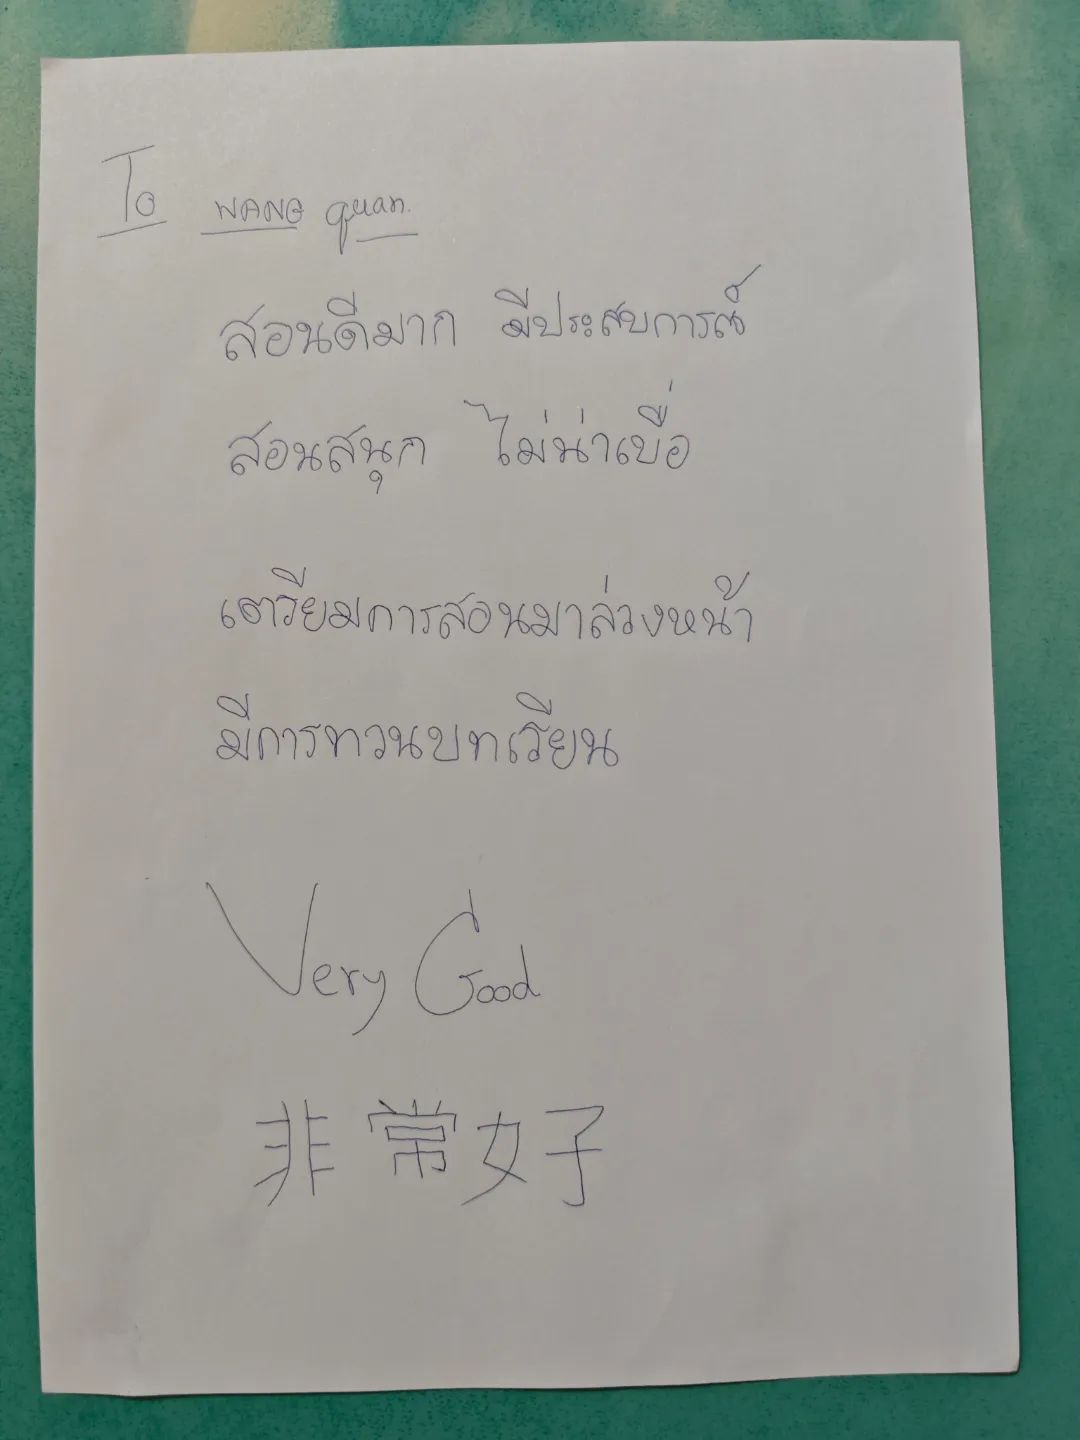 To WANG quan.
สอนดีมาก มีประสบการณ์
สอนสนุก ไม่น่าเบื่อ
เตรียมการสอนมาล่วงหน้า
มีการทวนบทเรียน
Very Good
非常好